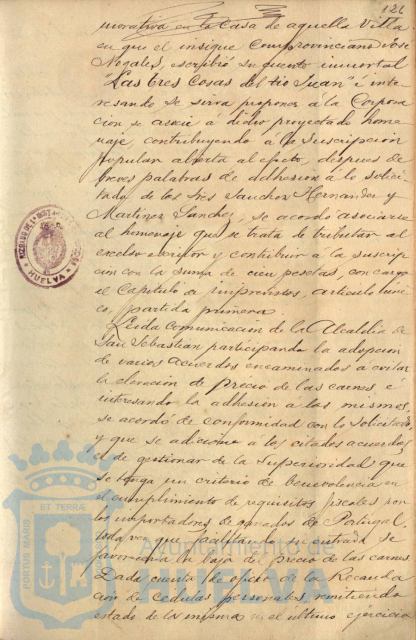 121
morativa en la Casa de aquella Villa
en que el insigne Comprovinciano José
Nogales, escribió su cuento inmortal
"Las tres Cosas del tio Juan" é inte-
resando se sirva proponer á la Corpora
cion se asocie á dicho proyectado home-
naje, contribuyendo á la Suscripcion
popular abierta al efecto, despues de
breves palabras de adhesion á lo solici-
tado de los Sres Sanchez Hernandez y
Martinez Sanchez, se acordó asociarse
al homenaje que se trata de tributar al
excelso escritor y contribuir á la suscrip-
cion con la suma de cien pesetas, con cargo
al Capitulo de imprevistos, articulo úni-
co, partida primera
Leida comunicacion de la Alcaldia de
San Sebastian participando la adopcion
de varios acuerdos encaminados a evitar
la elevacion de precio de las carnes é
interesando la adhesion á los mismos,
se acordó de conformidad con lo solicitado
y que se adicione á los citados acuerdos
el de gestionar de la Superioridad que
se tenga un criterio de benevolencia en
el cumplimiento de requisitos fiscales por
los importadores de ganados de Portugal,
toda vez que facilitando su entrada se
favorece la baja del precio de las carnes.
Dada cuenta de oficio de la Recauda
cion de Cedulas personales remitiendo
estado de la misma en el ultimo ejercicio
HUELVA
PORTUS MARIS ET TERRÆ
Ayuntamiento de
HUELVA